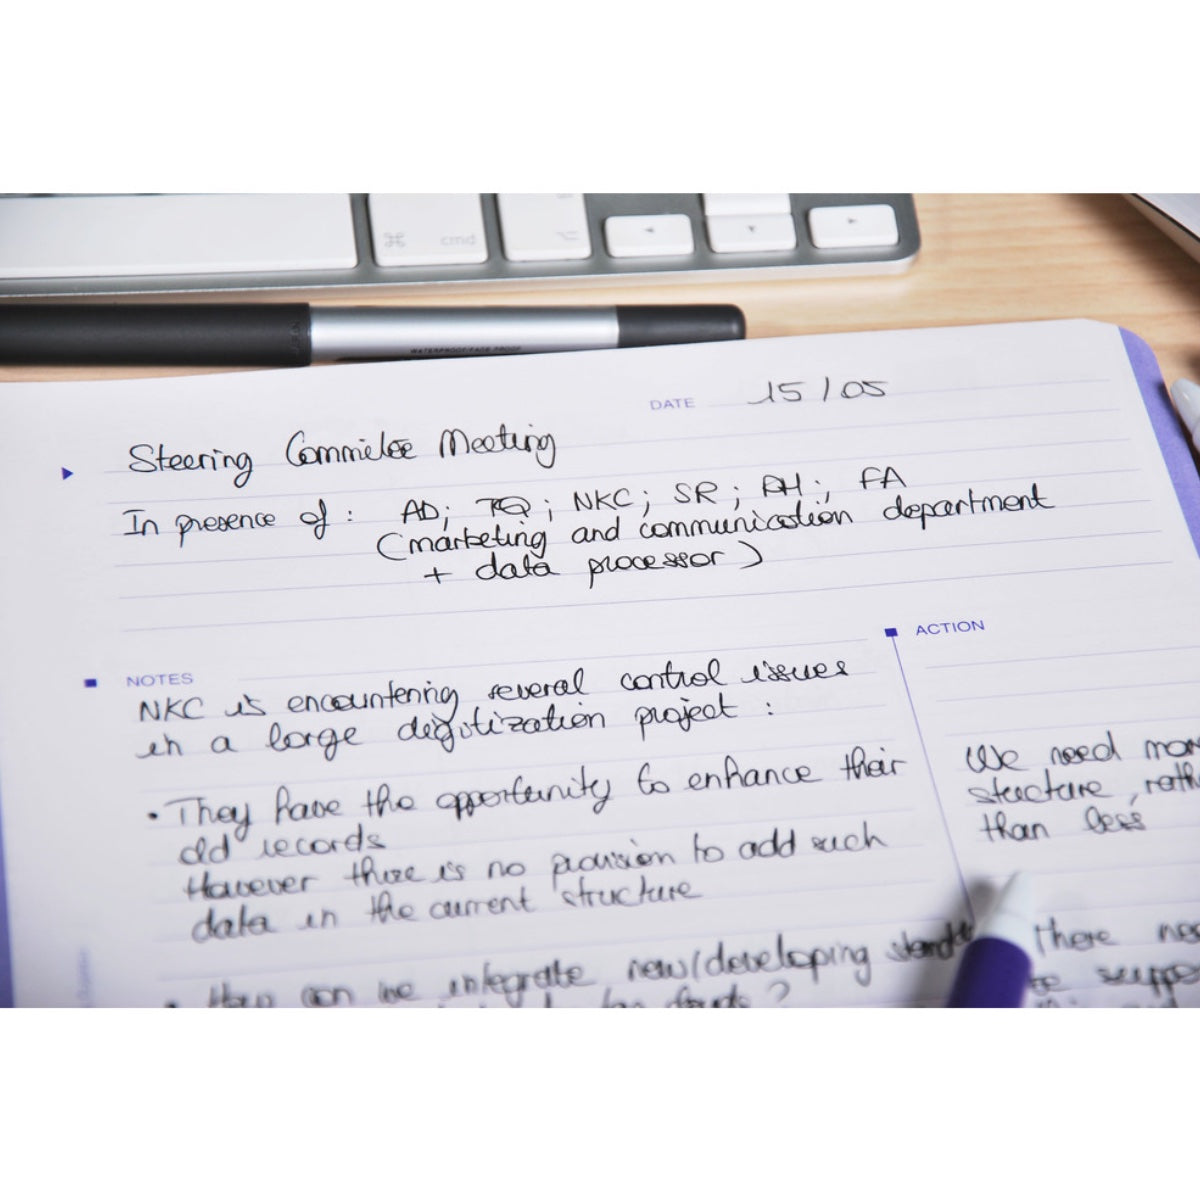 cmd
WATERPROOF/FADE PROOF
DATE 15/05
Steering Commitee Meeting
In presence of : AD; TQ; NKC; SR; AH; FA
(marketing and communication department
+ data processor)
NOTES
ACTION
NKC is encountering several control issues
in a large digitization project :
• They have the opportunity to enhance their
old records
However there is no provision to add such
data in the current structure
• How can we integrate new/developing
?
We need
structure,
than less
There